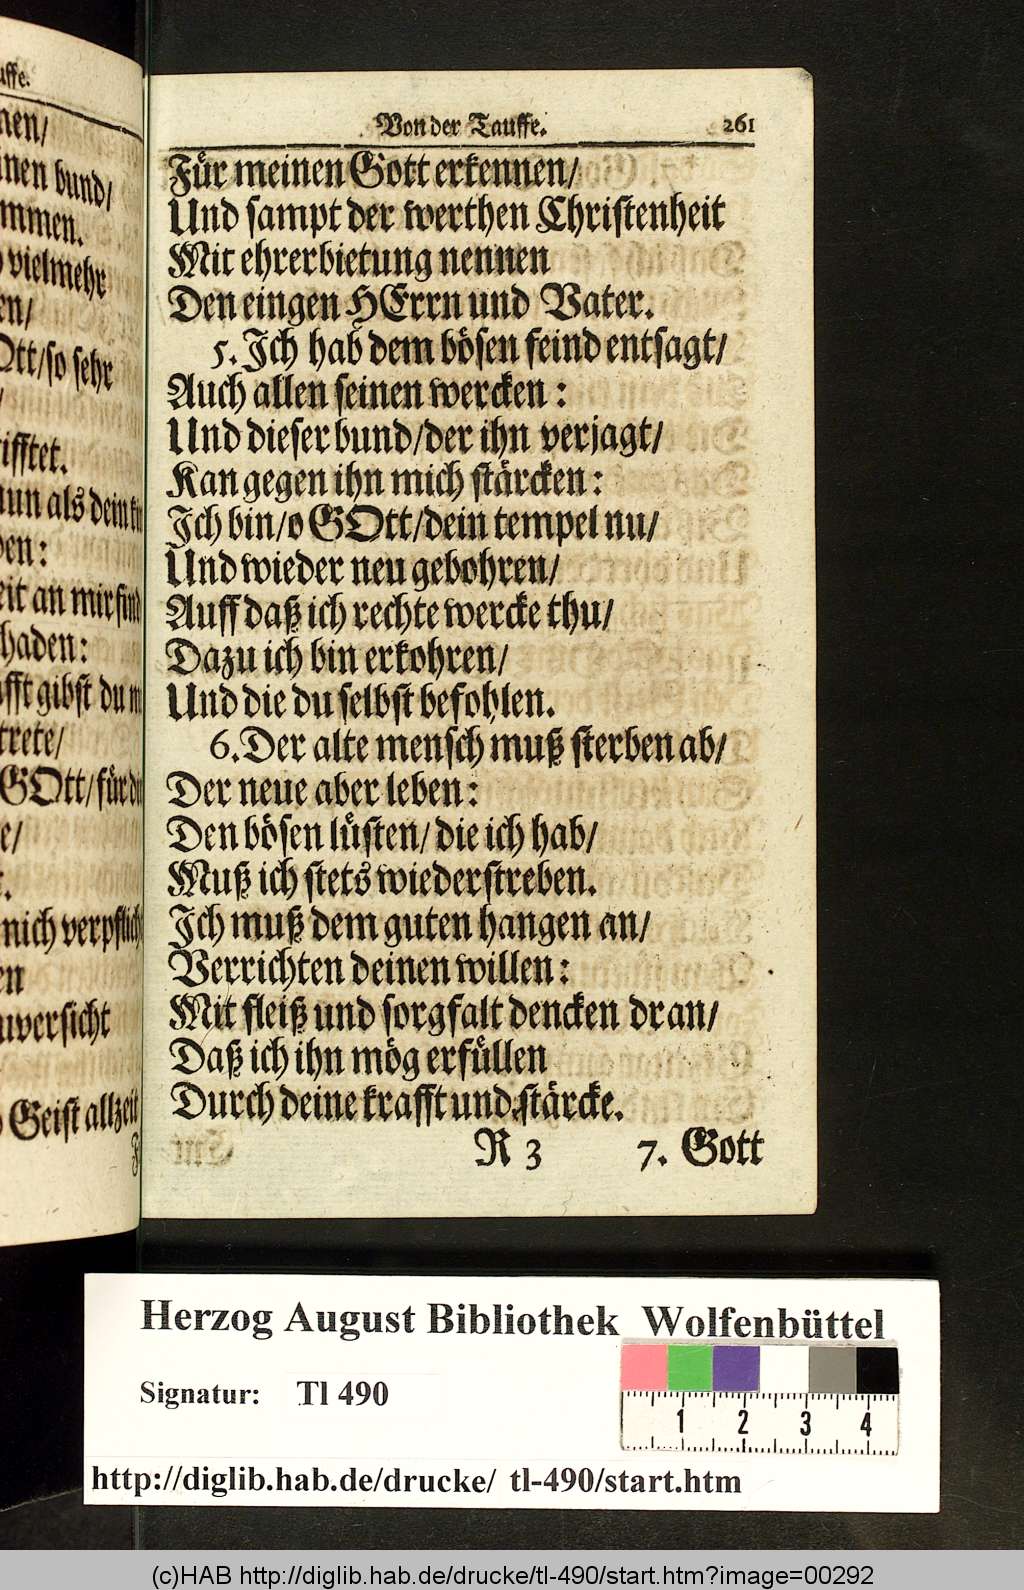 uffe.
nen/
inen bund/
mmen.
vielmehr
en/
Ott/so sehr
/
ifftet.
nun als dein
en:
eit an mir find
haden:
fft gibst du
trete/
GOtt/für
e/
mich verpflich
en
uversicht
Geist allzeit
Von der Tauffe. 261
Für meinen Gott erkennen/
Und sampt der werthen Christenheit
Mit ehrerbietung nennen
Den eingen HErrn und Vater.
5. Ich hab dem bösen feind entsagt/
Auch allen seinen wercken:
Und dieser bund/der ihn verjagt/
Kan gegen ihn mich stärcken:
Ich bin/o GOtt/dein tempel nu/
Und wieder neu gebohren/
Auff daß ich rechte wercke thu/
Dazu ich bin erkohren/
Und die du selbst befohlen.
6. Der alte mensch muß sterben ab/
Der neue aber leben:
Den bösen lüsten/die ich hab/
Muß ich stets wiederstreben.
Ich muß dem guten hangen an/
Verrichten deinen willen:
Mit fleiß und sorgfalt dencken dran/
Daß ich ihn mög erfüllen
Durch deine krafft und stärcke.
R 3 7. Gott
Herzog August Bibliothek Wolfenbüttel
Signatur: Tl 490
1 2 3 4
http://diglib.hab.de/drucke/ tl-490/start.htm
(c)HAB http://diglib.hab.de/drucke/tl-490/start.htm?image=00292